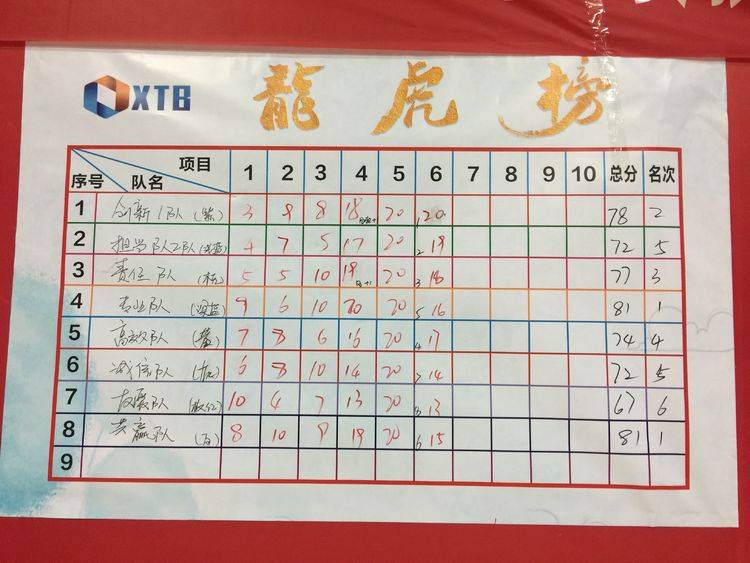 XTB
龍虎榜
序号 队名 项目 1 2 3 4 5 6 7 8 9 10 总分 名次
1 创新1队 (紫) 3 9 8 18 20 1 20 78 2
2 担当队2队 4 7 5 17 20 2 19 72 5
3 责任队 5 5 10 19 +1 20 3 18 77 3
4 专业队 (深蓝) 9 6 10 20 20 5 16 81 1
5 高效队 7 8 6 16 20 4 17 74 4
6 诚信队 6 8 10 14 20 7 14 72 5
7 友爱队 10 4 7 13 20 8 13 67 6
8 共赢队 (白) 8 10 9 19 20 6 15 81 1
9